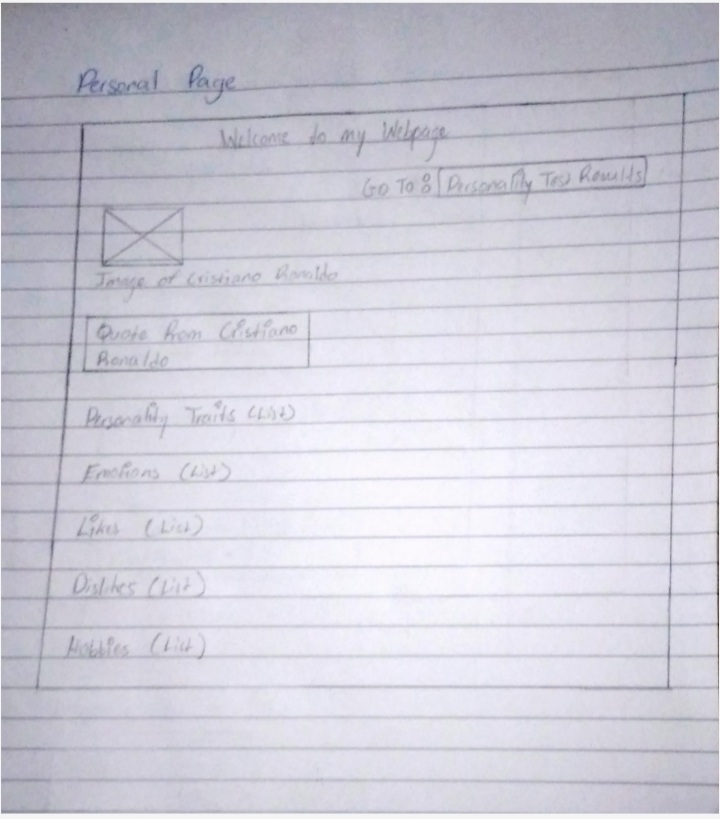 Personal Page
Welcome to my Webpage
Go To : Personality Test Results
Image of Cristiano Ronaldo
Quote from Cristiano
Ronaldo
Personality Traits (List)
Emotions (List)
Likes (List)
Dislikes (List)
Hobbies (List)